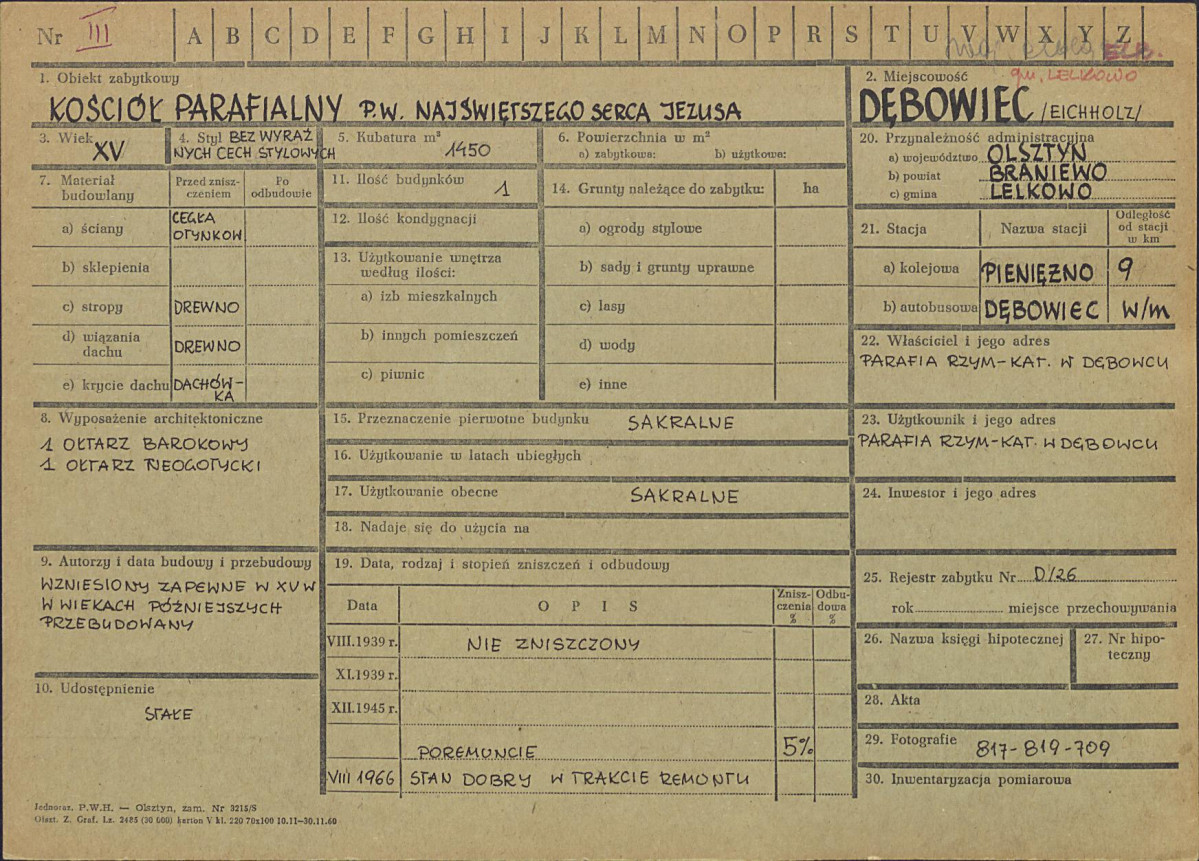 Nr III A B C D E F G H I J K L M N O P R S T U V W X Y Z
woj. ELB.
gm. LELKOWO
1. Obiekt zabytkowy
KOŚCIÓŁ PARAFIALNY P.W. NAJŚWIĘTSZEGO SERCA JEZUSA
2. Miejscowość
DĘBOWIEC /EICHHOLZ/
3. Wiek
XV
4. Styl BEZ WYRAŹ
NYCH CECH STYLOWYCH
5. Kubatura m³
1450
6. Powierzchnia w m²
a) zabytkowa: b) użytkowa:
7. Materiał
budowlany
Przed znisz-
czeniem
Po
odbudowie
a) ściany
CEGŁA
OTYNKOW
b) sklepienia
c) stropy DREWNO
d) wiązania
dachu
DREWNO
e) krycie dachu DACHÓW-
KA
8. Wyposażenie architektoniczne
1 OŁTARZ BAROKOWY
1 OŁTARZ NEOGOTYCKI
9. Autorzy i data budowy i przebudowy
WZNIESIONY ZAPEWNE W XV W
W WIEKACH PÓŹNIEJSZYCH
PRZEBUDOWANY
10. Udostępnienie
STAŁE
11. Ilość budynków 1
12. Ilość kondygnacji
13. Użytkowanie wnętrza
według ilości:
a) izb mieszkalnych
b) innych pomieszczeń
c) piwnic
14. Grunty należące do zabytku: ha
a) ogrody stylowe
b) sady i grunty uprawne
c) lasy
d) wody
e) inne
15. Przeznaczenie pierwotne budynku SAKRALNE
16. Użytkowanie w latach ubiegłych
17. Użytkowanie obecne SAKRALNE
18. Nadaje się do użycia na
19. Data, rodzaj i stopień zniszczeń i odbudowy
Data O P I S
Znisz-
czenia
%
Odbu-
dowa
%
VIII.1939 r. NIE ZNISZCZONY
XI.1939 r.
XII.1945 r.
PO REMONCIE 5%
VIII 1966 STAN DOBRY W TRAKCIE REMONTU
20. Przynależność administracyjna
a) województwo OLSZTYN
b) powiat BRANIEWO
c) gmina LELKOWO
21. Stacja Nazwa stacji
Odległość
od stacji
w km
a) kolejowa PIENIĘŻNO 9
b) autobusowa DĘBOWIEC w/m
22. Właściciel i jego adres
PARAFIA RZYM-KAT. W DĘBOWCU
23. Użytkownik i jego adres
PARAFIA RZYM-KAT. W DĘBOWCU
24. Inwestor i jego adres
25. Rejestr zabytku Nr D/26
rok miejsce przechowywania
26. Nazwa księgi hipotecznej
27. Nr hipo-
teczny
28. Akta
29. Fotografie 817-819-709
30. Inwentaryzacja pomiarowa
Jednoraz. P.W.H. — Olsztyn, zam. Nr 3215/S
Olszt. Z. Graf. Lz. 2485 (30 000) karton V kl. 220 70x100 10.11—30.11.60